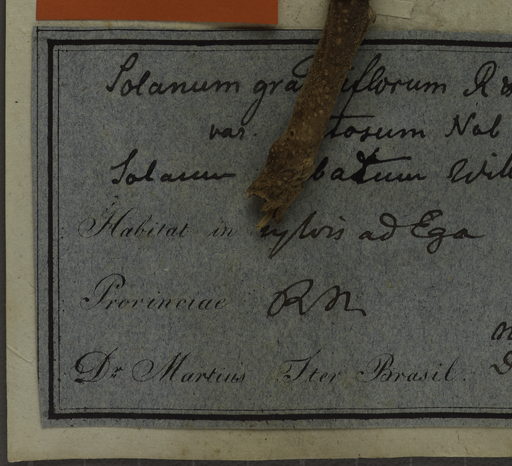 Solanum gra iflorum R &
var. tosum Nob
Solanum batum Will
Habitat in sylvis ad Ega
Provinciae R N
Dr Martius Iter Brasil.